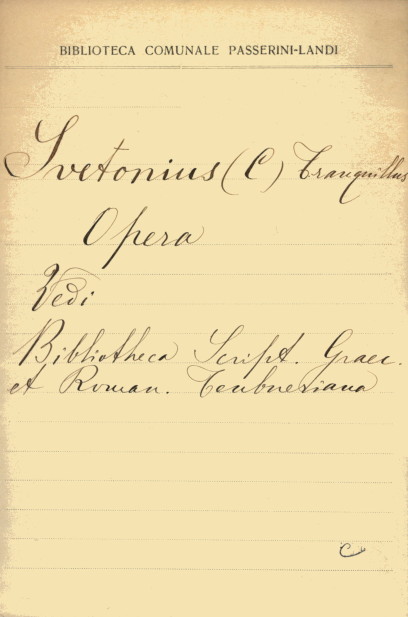 BIBLIOTECA COMUNALE PASSERINI-LANDI
Svetonius (C) Tranquillus
Opera
Vedi
Bibliotheca Script. Graec.
et Roman. Teubneriana
C